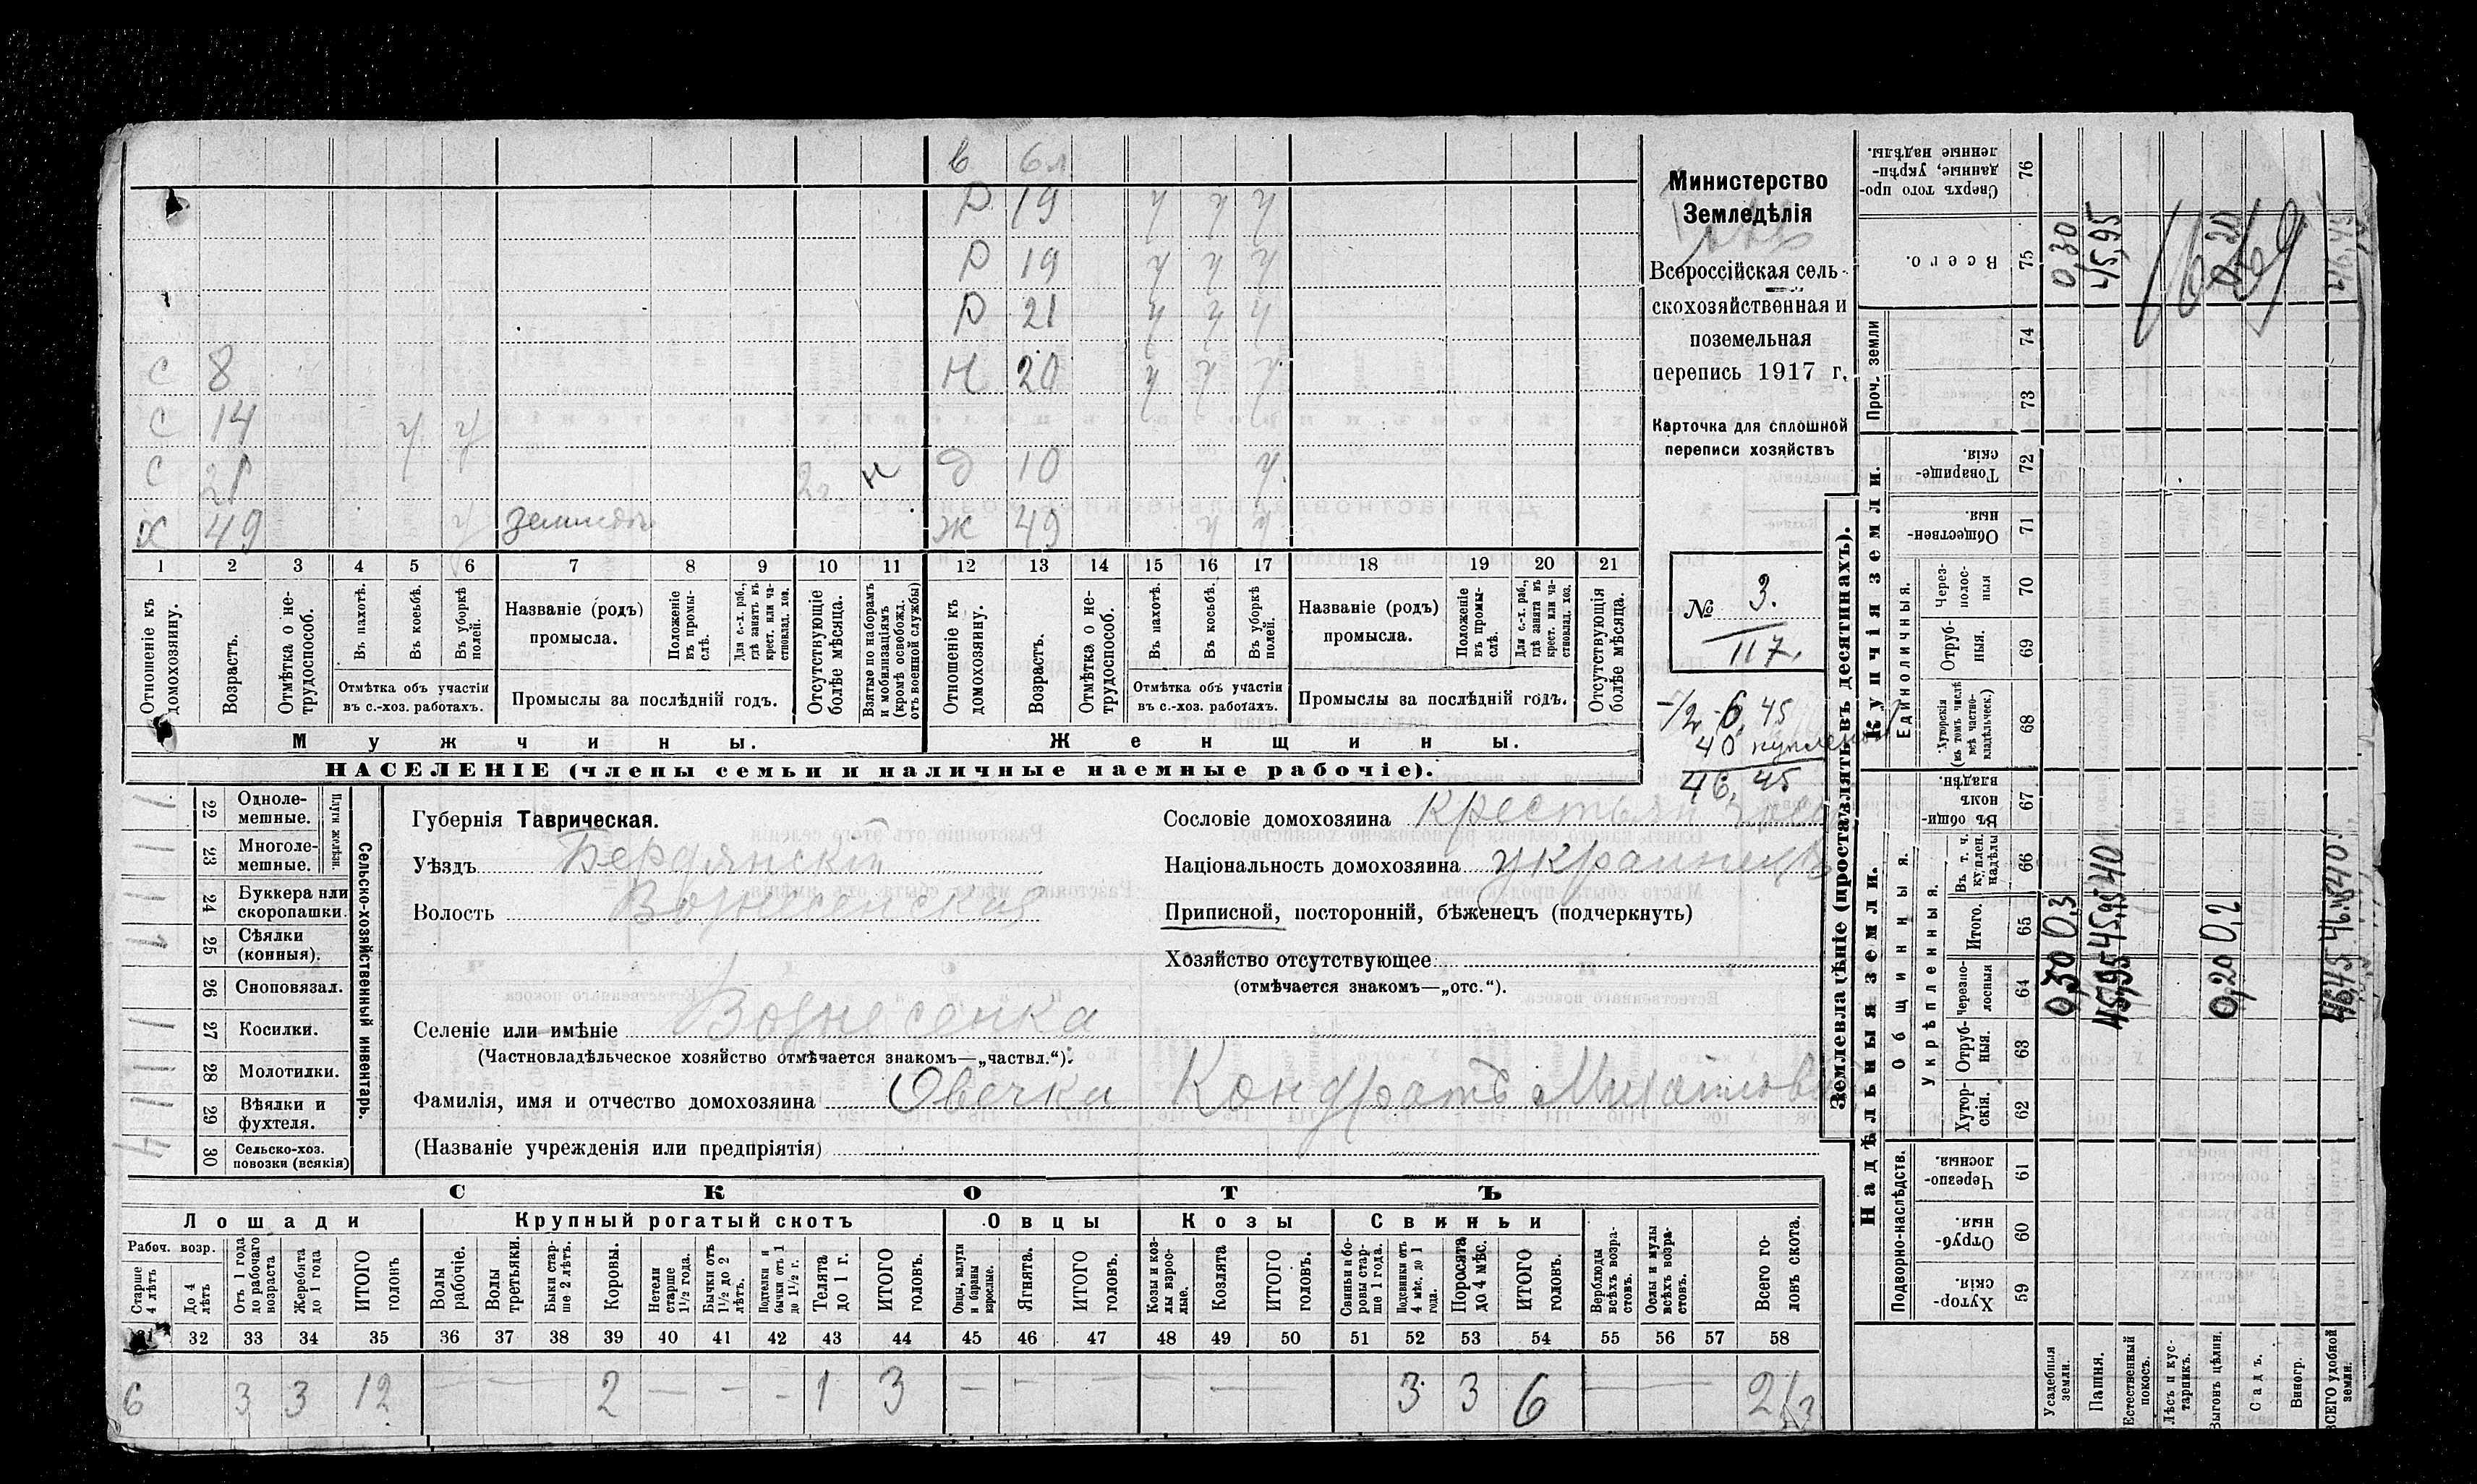 в 6 л
Р 19 у у у
Р 19 у у у
Р 21 у у у
С 8 Н 20 у у у
С 14 у у
С 21 2 г. н д 10 у
Х 49 у ж 49 у у
1 2 3 4 5 6 7 8 9 10 11 12 13 14 15 16 17 18 19 20 21
Отношеніе къ домохозяину.
Возрастъ.
Отмѣтка о не-трудоспособ.
Въ пахотѣ.
Въ косьбѣ.
Въ уборкѣ полей.
Отмѣтка объ участіи
въ с.-хоз. работахъ.
Названіе (родъ)
промысла.
Положеніе въ промы-слѣ.
Для с.-х. раб., гдѣ занятъ въ крест. или ча-стновлад. хоз.
Промыслы за послѣдній годъ.
Отсутствующіе болѣе мѣсяца.
Взятые по наборамъ и мобилизаціямъ (кромѣ освобожд. отъ военной службы)
Отношеніе къ домохозяину.
Возрастъ.
Отмѣтка о не-трудоспособ.
Въ пахотѣ.
Въ косьбѣ.
Въ уборкѣ полей.
Отмѣтка объ участіи
въ с.-хоз. работахъ.
Названіе (родъ)
промысла.
Положеніе въ промы-слѣ.
Для с.-х. раб., гдѣ занята въ крест. или ча-стновлад. хоз.
Промыслы за послѣдній годъ.
Отсутствующія болѣе мѣсяца.
Мужчины. Женщины.
НАСЕЛЕНІЕ (члены семьи и наличные наемные рабочіе).
Министерство
Земледѣлія
Всероссійская сель-
скохозяйственная и
поземельная
перепись 1917 г.
Карточка для сплошной
переписи хозяйствъ
№ 3.
117.
6,45
40
46,45
22 Одноле-мешные.
23 Многоле-мешные.
Плуги желѣзн.
24 Буккера или скоропашки.
25 Сѣялки (конныя).
26 Сноповязал.
27 Косилки.
28 Молотилки.
29 Вѣялки и фухтеля.
30 Сельско-хоз. повозки (всякія)
Сельско-хозяйственный инвентарь.
Губернія Таврическая.
Уѣздъ Бердянскій
Волость Вознесенская
Селеніе или имѣніе Вознесенка
(Частновладѣльческое хозяйство отмѣчается знакомъ—„частвл.“).
Фамилія, имя и отчество домохозяина Овечка Кондратъ Михайлович
(Названіе учрежденія или предпріятія)
Сословіе домохозяина крестьян
Національность домохозяина украинецъ
Приписной, посторонній, бѣженецъ (подчеркнуть)
Хозяйство отсутствующее
(отмѣчается знакомъ—„отс.“).
СКОТЪ
Лошади Крупный рогатый скотъ Овцы Козы Свиньи
Рабоч. возр.
Старше 4 лѣтъ
До 4 лѣтъ
Отъ 1 года до рабочаго возраста
Жеребята до 1 года
ИТОГО головъ
Волы рабочіе.
Волы третьяки.
Быки стар-ше 2 лѣтъ.
Коровы.
Нетели старше 1½ года.
Бычки отъ 1½ до 2 лѣтъ.
Подтелки и бычки отъ 1 до 1½ г.
Телята до 1 г.
ИТОГО головъ.
Овцы, валухи и бараны взрослые.
Ягнята.
ИТОГО головъ.
Козы и коз-лы взрос-лые.
Козлята
ИТОГО головъ.
Свиньи и бо-ровы стар-ше 1 года.
Подсвинки отъ 4 мѣс. до 1 года.
Поросята до 4 мѣс.
ИТОГО головъ.
Верблюды всѣхъ возра-стовъ.
Ослы и мулы всѣхъ возра-стовъ.
Всего го-ловъ скота.
32 33 34 35 36 37 38 39 40 41 42 43 44 45 46 47 48 49 50 51 52 53 54 55 56 57 58
6 3 3 12 — — — 2 — - - 1 3 — - — — 3 3 6 — — 21
Землевладѣніе (проставлять въ десятинахъ).
Надѣльныя земли. Купчія земли.
Подворно-наслѣдств.
Общинныя.
Укрѣпленныя.
Единоличныя.
Проч. земли
Хутор-скія. 59
Отруб-ныя. 60
Черезпо-лосныя. 61
Хутор-скія. 62
Отруб-ныя. 63
Черезпо-лосныя 64
Итого. 65
Въ т. ч. куплен. надѣлы 66
Въ общин-номъ владѣн. 67
Хуторскія (въ томъ числѣ всѣ частно-владѣльческ.) 68
Отруб-ныя. 69
Через-полос-ныя 70
Обществен-ныя. 71
Товарище-скія. 72
73
74
Всего. 75
Сверхъ того про-данные, укрѣп-ленные надѣлы. 76
Усадебныя земли. 0,30 0,3 0,30
Пашня. 45,95 45,95 40 45,95
Естественный покосъ.
Лѣсъ и кус-тарникъ.
Выгонъ цѣлин. 0,20 0,2 0,20
Садъ.
Виногр.
ВСЕГО удобной земли. 46,45 46,45 40 46,45